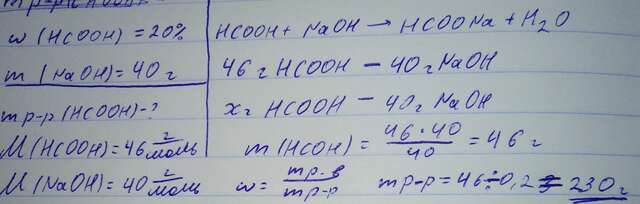 ω (HCOOH) = 20%
m (NaOH) = 40 г
m р-р (HCOOH) - ?
M (HCOOH) = 46 г/моль
M (NaOH) = 40 г/моль
HCOOH + NaOH → HCOONa + H₂O
46 г HCOOH — 40 г NaOH
x г HCOOH — 40 г NaOH
m (HCOH) = 46 · 40 / 40 = 46 г
ω = m р-в / m р-р m р-р = 46 ÷ 0,2 = 230 г